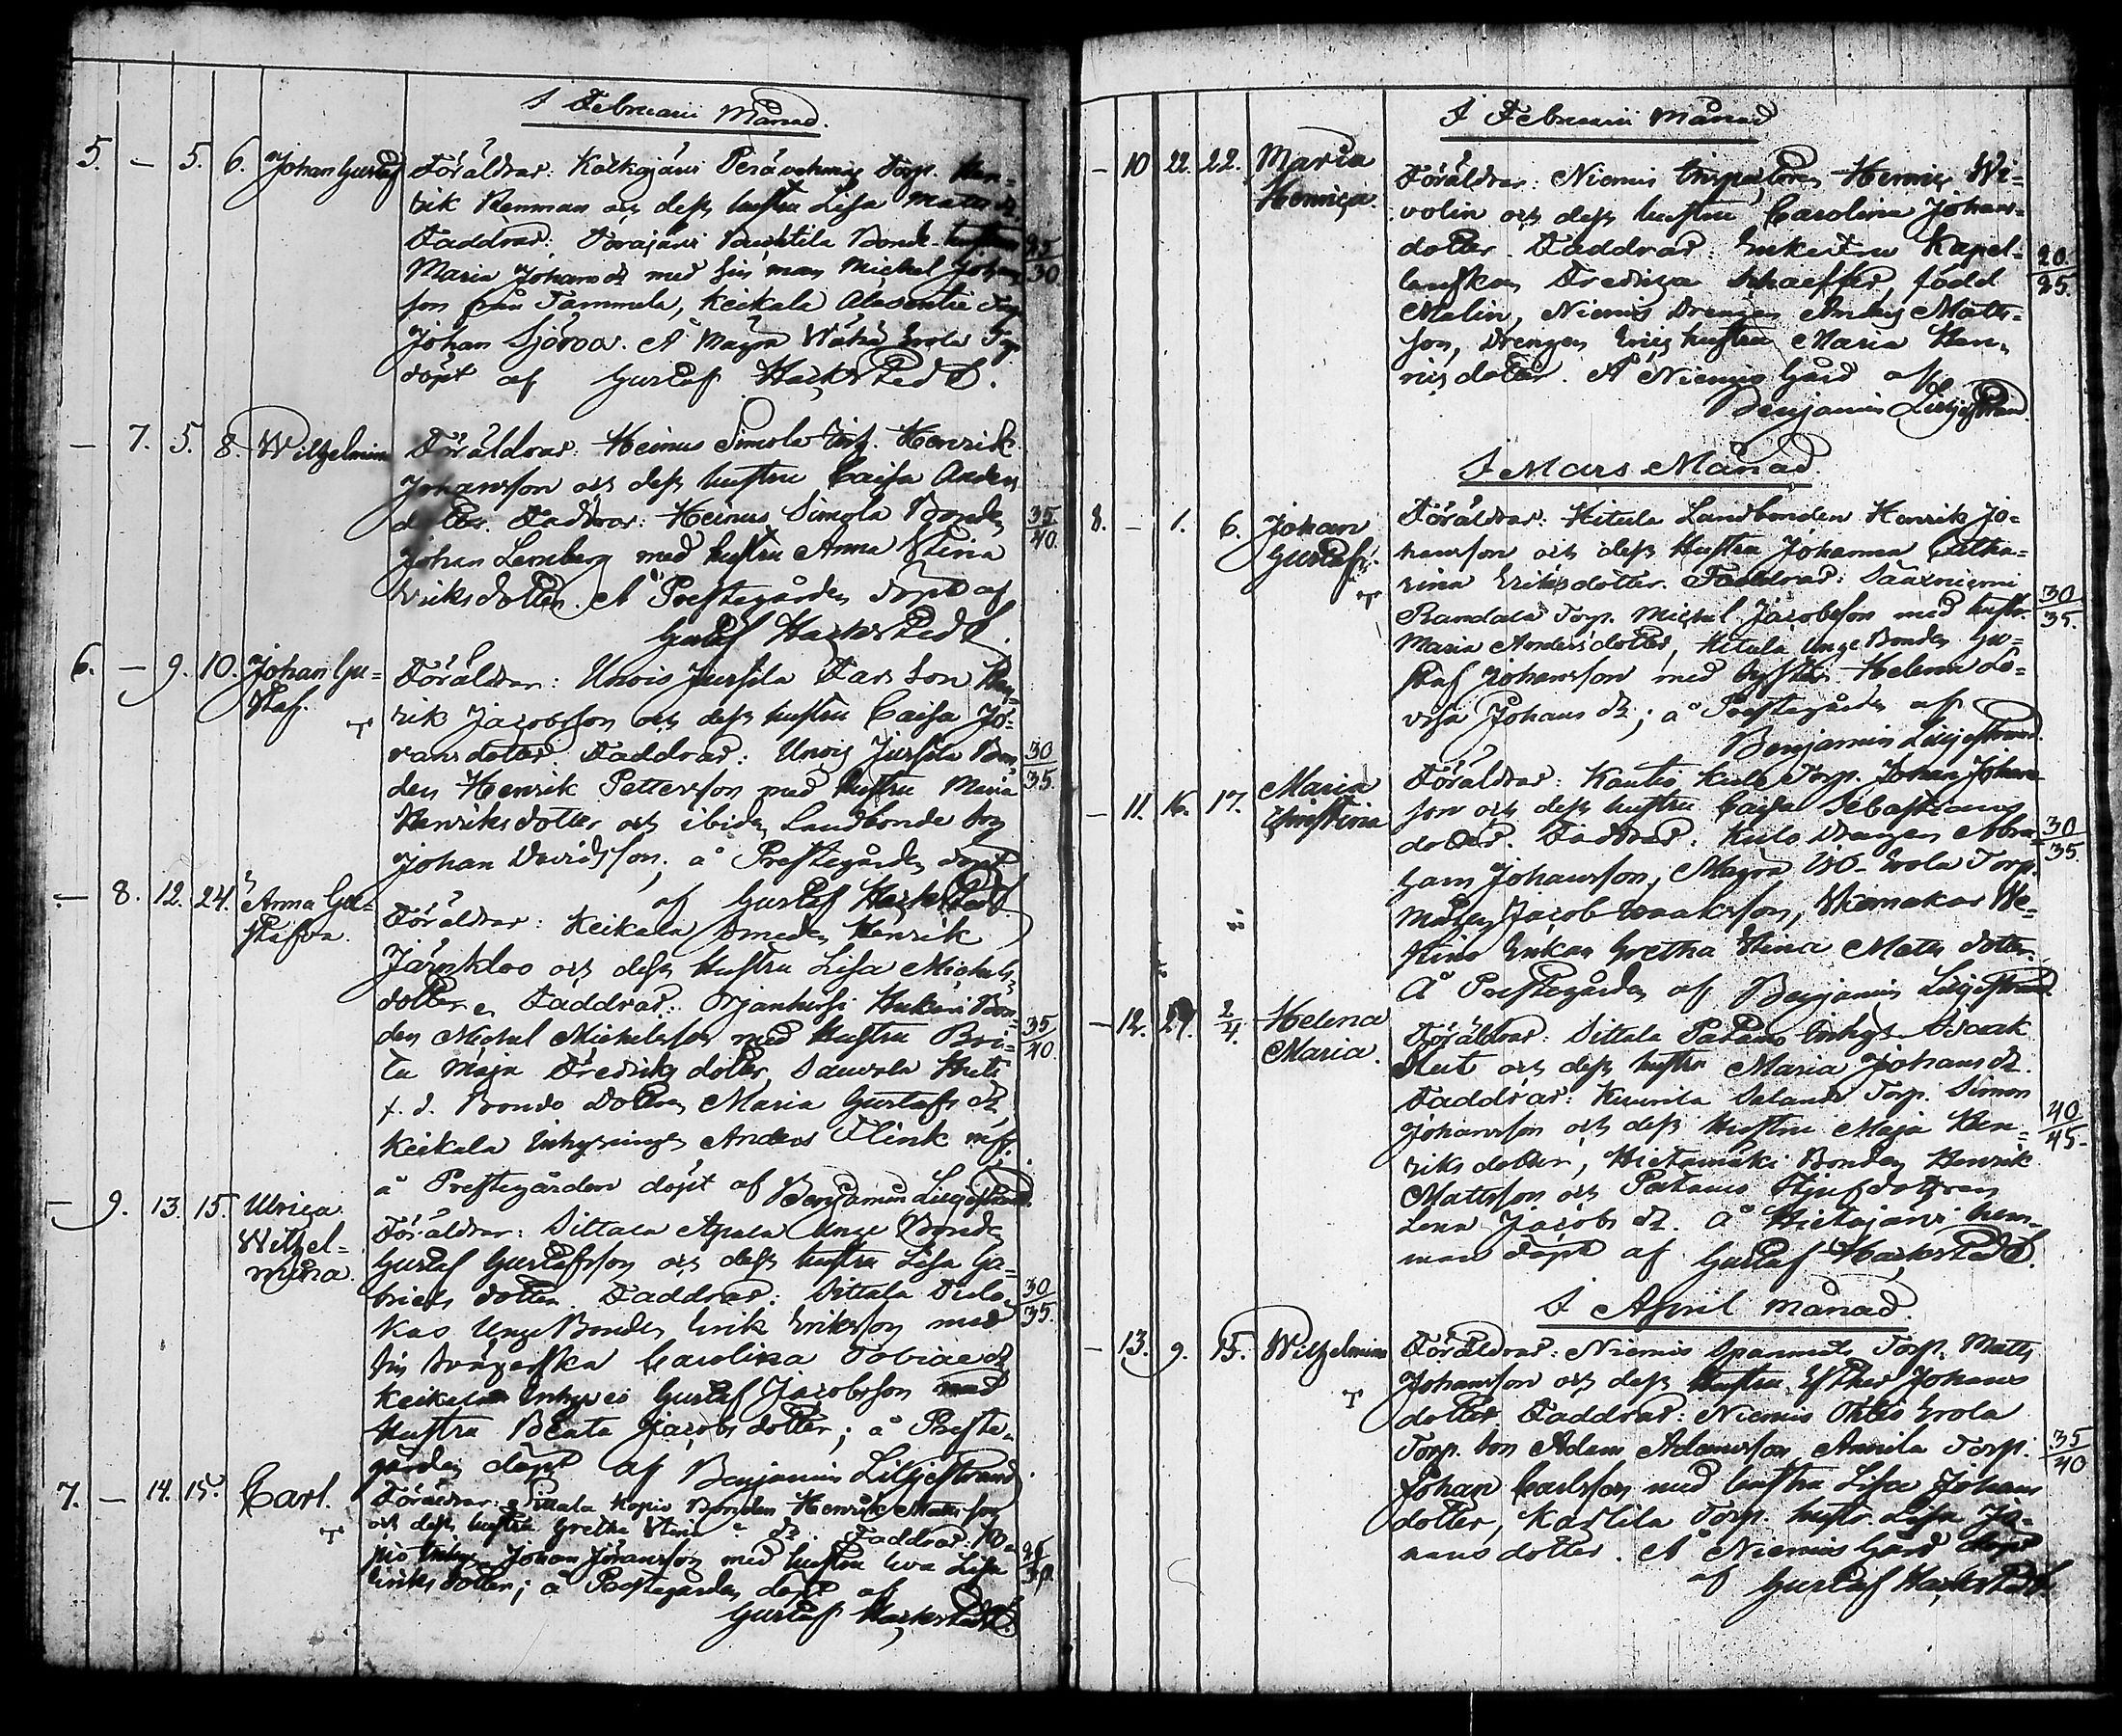 I Februarii Månad.
5. — 5. 6. Johan Gustaf Föräldrar: Kalkajärvi Torp. Hen=
rik Renman och dess hustru Lisa Matts dr
Faddrar: Torajärvi Bonde hustrun
25/30
Maria Johans dr med sin man Michel Johans
son från Tammela, Keikala Torp.
Johan Sjöroos. Å Wähä Erola Torp
döpt af Gustaf Hackstedt.
— 7. 5. 8. Wilhelmina Föräldrar: Heinus Simola Inh. Henrik
Johansson och dess hustru Caisa Anders
dotter. Faddrar: Heinus Simola Bonden
35/40.
Johan Lemberg med hustru Anna Stina
Eriksdotter. Å Prestegården döpt af
Gustaf Hackstedt.
6. — 9. 10. Johan Gu=
staf.
Föräldrar: Unois Jussila Far Son Hen=
rik Jacobsson och dess hustru Caisa Jö=
rans dotter. Faddrar: Unois Jussila Bon=
30/35.
den Henrik Pettersson med hustru Maria
Henriksdotter och ibidem Landbonde son
Johan Davidsson; å Prestegården döpt
af Gustaf Hackstedt
— 8. 12. 24. Anna Gu=
stafva.
Föräldrar: Keikala Smeden Henrik
Järnkloo och dess hustru Lisa Michels
dotter. Faddrar: Bon=
35/40.
den Michel Michelsson med hustru Bri=
ta Maja Fredriks dotter, Sauvala
f. d. Bonde Dottren Maria Gustafs dr,
Keikala Inhysingen Anders Flink
å Prestegården döpt af Benjamin Liljestrand.
— 9. 13. 15. Ulrica
Wilhel=
mina.
Föräldrar: Sittala Unge Bonden
Gustaf Gustafsson och dess hustru Lisa Ga=
briels dotter. Faddrar: Sittala
30/35.
Unge Bonden Erik Eriksson med
sin Svägerska Carolina Tobiae dr
Keikala Gustaf Jacobsson med
hustru Beata Jacobs dotter; å Preste=
gården döpt af Benjamin Liljestrand.
7. — 14. 15. Carl. Föräldrar: Sittala Kopio Bonden Henrik Mattsson
och dess hustru Gretha Stina dr. Faddrar: Ko=
pio Inhys. Johan Jöransson med hustru Eva Lisa
25/30.
Eriks dotter; å Prestegården döpt af
Gustaf Hackstedt.
I Februarii Månad
— 10 22. 22. Maria
Henrica.
Föräldrar: Niemis Inspectoren Henric Wi=
volin och dess hustru Carolina Johans=
dotter. Faddrar: Enkefru Kapel=
20./25.
lanskan Fredrica Schaeffer, född
Malin, Niemis Drengen Anders Matts=
son, Drengen Erics hustru Maria Hen=
rics dotter. Å Niemis Gård af
Benjamin Liljestrand.
I Mars Månad
8. — 1. 6. Johan
Gustaf.
Föräldrar: Hitula Landbonden Henrik Jo=
hansson och dess Hustru Johanna Catha=
rina Eriksdotter. Faddrar: Sääxniemi
30/35.
Randala Torp. Michel Jacobsson med hustr.
Maria Andersdotter, Hitula Unge Bonden Gu=
staf Johansson med syster Helena Lo=
visa Johans dr; å Prestegården af
Benjamin Liljestrand.
— 11. 16. 17. Maria
Christina
Föräldrar: Kantis Torp. Johan Johans
son och dess hustru Caisa Sebastians
dotter. Faddrar: Drengen Abra=
30/35.
ham Johansson, Erola Torp.
Mågen Jacob Isaaksson,
Enkan Gretha Stina Matts dotter
Å Prestegården af Benjamin Liljestrand.
— 12. 27. 2/4. Helena
Maria.
Föräldrar: Sittala Patans Inhys. Isaak
och dess hustru Maria Johans dr.
Faddrar: Salands Torp. Simon
40/45.
Johansson och dess hustru Maja Hen=
riks dotter, Hietamäki Bonden Henrik
Mattsson och Patans Stjufdottren
Lena Jacobs dr. Å Hietajärvi hem=
man döpt af Gustaf Hackstedt.
I April månad.
— 13. 9. 15. Wilhelmina Föräldrar: Niemis Torp. Matts
Johansson och dess hustru Esther Johans
dotter. Faddrar: Niemis Erola
35/40
Torp. son Adam Adamsson, Annila Torp.
Johan Carlsson med hustru Lisa Johans
dotter, Karlila Torp. hustr. Lisa Jo=
hans dotter. Å Niemis Gård döpt
af Gustaf Hackstedt.